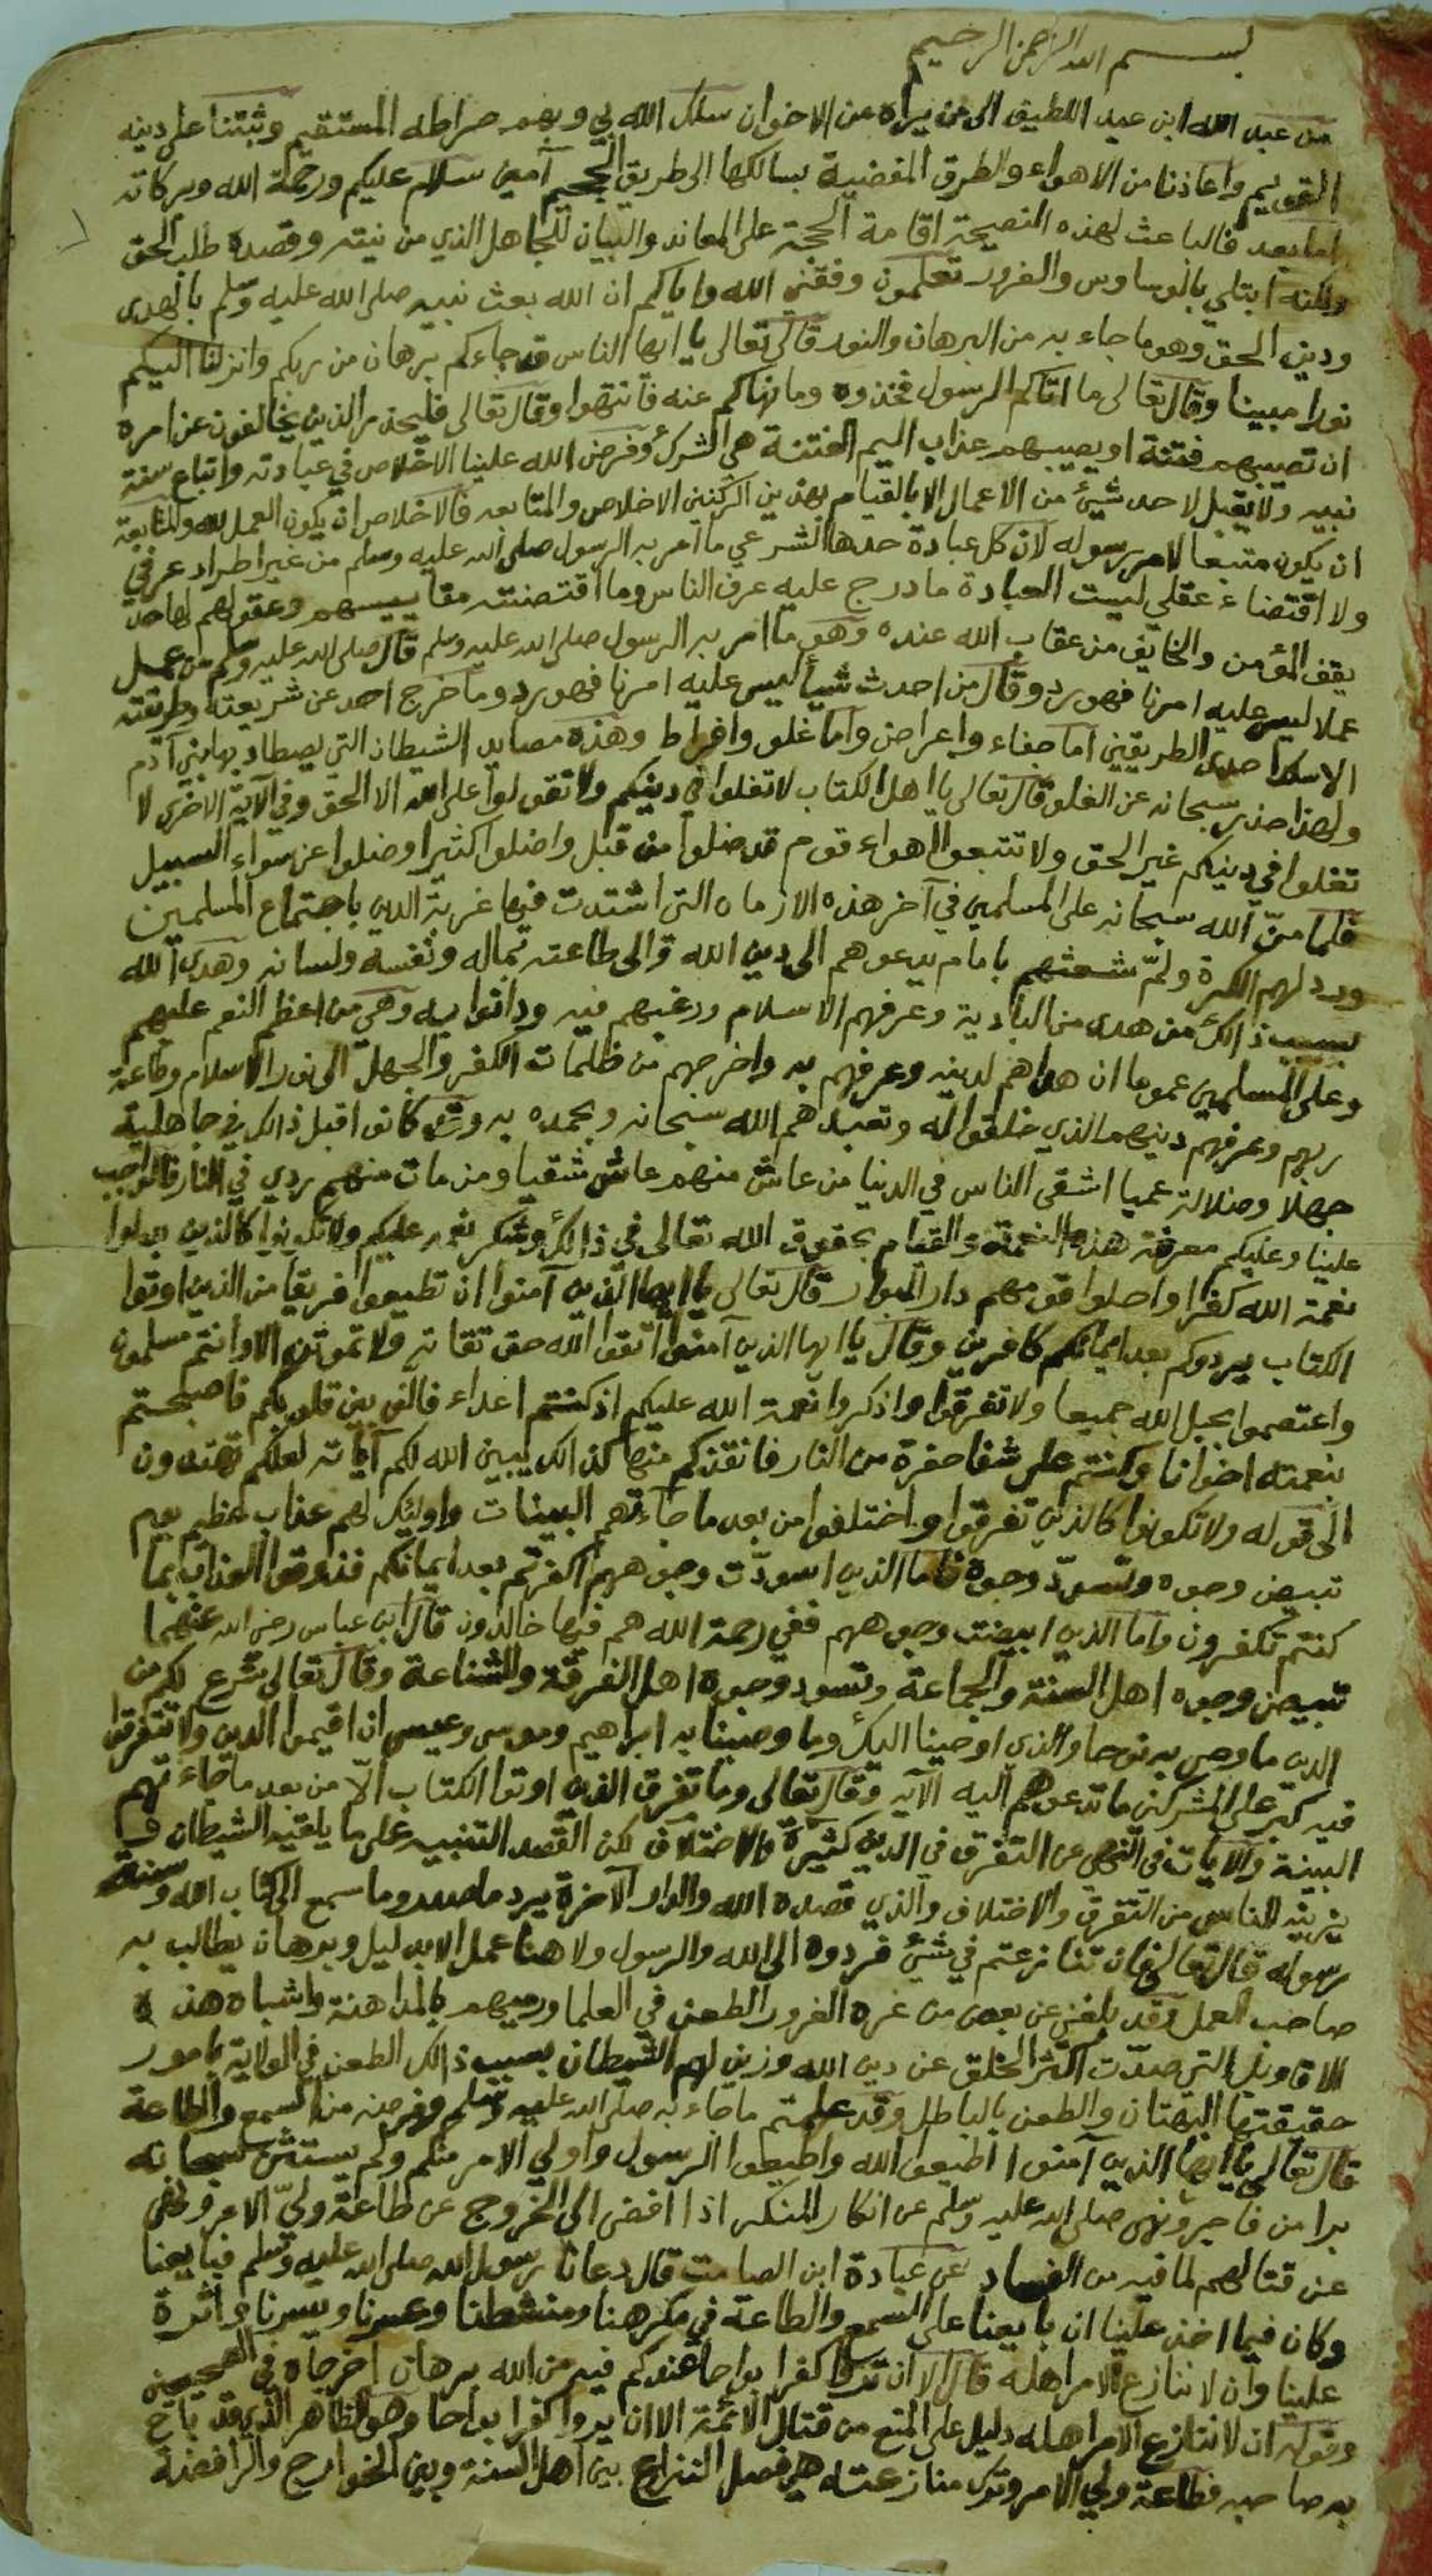 بسم الله الرحمن الرحيم
من عبد الله ابن عبد اللطيف الى من يراه من الاخوان سلك الله بي وبهم صراطه المستقيم وثبتنا على دينه
القويم واعاذنا من الاهواء والطرق المفضية بسالكها الى طريق الجحيم آمين سلام عليكم ورحمة الله وبركاته
اما بعد فالباعث لهذه النصيحة اقامة الحجة على المعاند والبيان للجاهل الذي من نيته وقصده طلب الحق
ولكنه ابتلي بالوساوس والغرور تعلمون وفقني الله واياكم ان الله بعث نبيه صلى الله عليه وسلم بالهدى
ودين الحق وهو ما جاء به من البرهان والنور قال تعالى يا ايها الناس قد جاءكم برهان من ربكم وانزلنا اليكم
نورا مبينا وقال تعالى ما اتاكم الرسول فخذوه وما نهاكم عنه فانتهوا وقال تعالى فليحذر الذين يخالفون عن امره
ان تصيبهم فتنة او يصيبهم عذاب اليم الفتنة هي الشرك وفرض الله علينا الاخلاص في عبادته واتباع سنة
نبيه ولا يقبل لاحد شيئ من الاعمال الا بالقيام بهذين الركنين الاخلاص والمتابعه فالاخلاص ان يكون العمل لله والمتابعة
ان يكون متبعا لامر رسوله لان كل عبادة حدها الشرعي ما امر به الرسول صلى الله عليه وسلم من غير اطراد عرفي
ولا اقتضاء عقلي ليست العبادة ما درج عليه عرف الناس وما اقتضته مقاييسهم وعقولهم لها حد
يقف المؤمن والخايف من عقاب الله عنده وهو ما امر به الرسول صلى الله عليه وسلم قال صلى الله عليه وسلم من عمل
عملا ليس عليه امرنا فهو رد وقال من احدث شيأ ليس عليه امرنا فهو رد وما خرج احد عن شريعته وطريقته
الا سلك احدى الطريقين اما جفاء واعراض واما غلو وافراط وهذه مصايد الشيطان التي يصطاد بها بني آدم
ولهذا حذر سبحانه عن الغلو قال تعالى يا اهل الكتاب لا تغلوا في دينكم ولا تقولوا على الله الا الحق وفي الآية الاخرى لا
تغلوا في دينكم غير الحق ولا تتبعوا اهواء قوم قد ضلوا من قبل واضلوا كثيرا وضلوا عن سواء السبيل
فلما منّ الله سبحانه على المسلمين في آخر هذه الازمان التي اشتدت فيها غربة الدين باجتماع المسلمين
ورد لهم الكرة ولمّ شعثهم بامام يدعوهم الى دين الله والى طاعته بماله ونفسه ولسانه وهدى الله
بسبب ذالك من هدى من البادية وعرفهم الاسلام ورغبهم فيه ودانوا به وهي من اعظم النعم عليهم
وعلى المسلمين عموما ان هداهم لدينه وعرفهم به واخرجهم من ظلمات الكفر والجهل الى نور الاسلام وطاعة
ربهم وعرفهم دينهم الذي خلقوا له وتعبدهم الله سبحانه وبحمده به وقد كانوا قبل ذالك في جاهلية
جهلا وضلالة عميا اشقى الناس في الدنيا من عاش منهم عاش شقيا ومن مات منهم ردي في النار فالواجب
علينا وعليكم معرفة هذه النعمة والقيام بحقوق الله تعالى في ذالك وشكر نعمه عليكم ولا تكونوا كالذين بدلوا
نعمة الله كفرا واحلوا قومهم دار البوار قال تعالى يا ايها الذين آمنوا ان تطيعوا فريقا من الذين اوتوا
الكتاب يردوكم بعد ايمانكم كافرين وقال يا ايها الذين آمنوا اتقوا الله حق تقاته ولا تموتن الا وانتم مسلمون
واعتصموا بحبل الله جميعا ولا تفرقوا واذكروا نعمة الله عليكم اذ كنتم اعداء فالف بين قلوبكم فاصبحتم
بنعمته اخوانا وكنتم على شفا حفرة من النار فانقذكم منها كذالك يبين الله لكم آياته لعلكم تهتدون
الى قوله ولا تكونوا كالذين تفرقوا واختلفوا من بعد ما جاءتهم البينات واوليك لهم عذاب عظيم يوم
تبيض وجوه وتسودّ وجوه فاما الذين اسودّت وجوههم اكفرتم بعد ايمانكم فذوقوا العذاب بما
كنتم تكفرون واما الذين ابيضت وجوههم ففي رحمة الله هم فيها خالدون قال ابن عباس رضي الله عنهما
تبيض وجوه اهل السنة والجماعة وتسود وجوه اهل الفرقة والشناعة وقال تعالى شرع لكم من
الدين ما وصى به نوحا والذي اوحينا اليك وما وصينا به ابراهيم وموسى وعيسى ان اقيموا الدين ولا تتفرقوا
فيه كبر على المشركين ما تدعوهم اليه الآيه وقال تعالى وما تفرق الذين اوتوا الكتاب الّا من بعد ما جاءتهم
البينة والآيات في النهي عن التفرق في الدين كثيرة والاختلاف لكن القصد التنبيه على ما يلقيه الشيطان
يزينه للناس من التفرق والاختلاف والذي قصده الله والدار الآخرة يرد ما وما سمع الى كتاب الله وسنة
رسوله قال تعالى فان تنازعتم في شيئ فردوه الى الله والرسول ولا هنا عمل الا بدليل وبرهان يطالب به
صاحب العمل وقد بلغني عن بعض من غره الغرور الطعن في العلما ورميهم بالمداهنة واشباه هذه
الاقاويل التي صدّت اكثر الخلق عن دين الله وزين لهم الشيطان بسبب ذالك الطعن في الولاية بامور
حقيقتها البهتان والطعن بالباطل وقد علمتم ما جاء به صلى الله عليه وسلم وفرضه من السمع والطاعة
قال تعالى يا ايها الذين آمنوا اطيعوا الله واطيعوا الرسول واولي الامر منكم ولم يستثن سبحانه
برا من فاجر ونهى صلى الله عليه وسلم عن انكار المنكر اذا افضى الى الخروج عن طاعة وليّ الامر ونهى
عن قتالهم لما فيه من الفساد عن عبادة ابن الصامت قال دعانا رسول الله صلى الله عليه وسلم فبايعنا
وكان فيما اخذ علينا ان بايعنا على السمع والطاعة في مكرهنا ومنشطنا وعسرنا ويسرنا واثرة
علينا وان لا ننازع الامر اهله قال الا ان تروا كفرا بواحا عندكم فيه من الله برهان اخرجاه في الصحيحين
وقوله ان لا ننازع الامر اهله دليل على المنع من قتال الائمة الا ان يروا كفرا بواحا وهو الظاهر الذي قد باح
به صاحبه فطاعة ولي الامر وترك منازعته هي فصل النزاع بين اهل السنة وبين الخوارج والرافضة